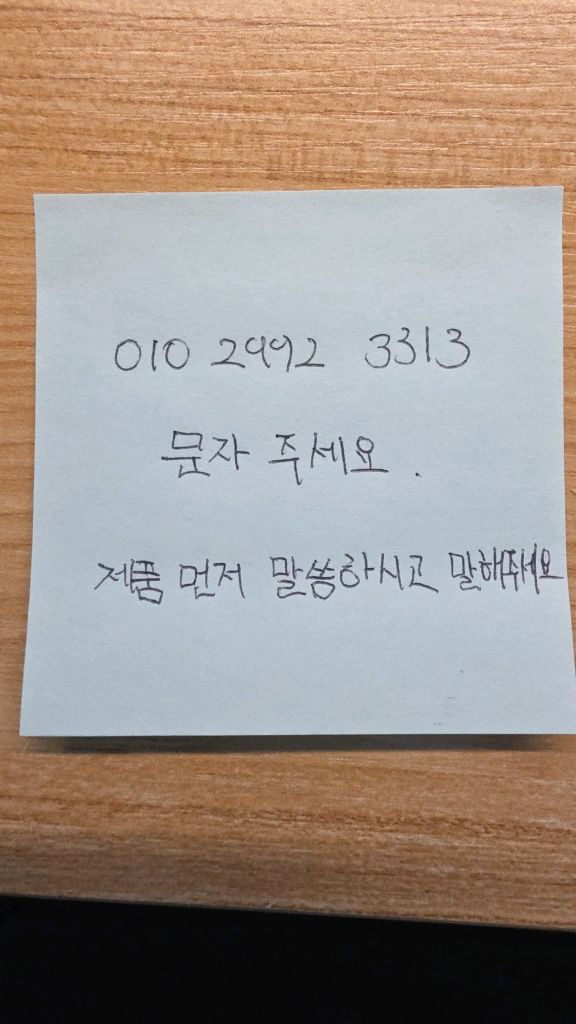 010 2992 3313
문자 주세요.
제품 먼저 말씀하시고 말해주세요